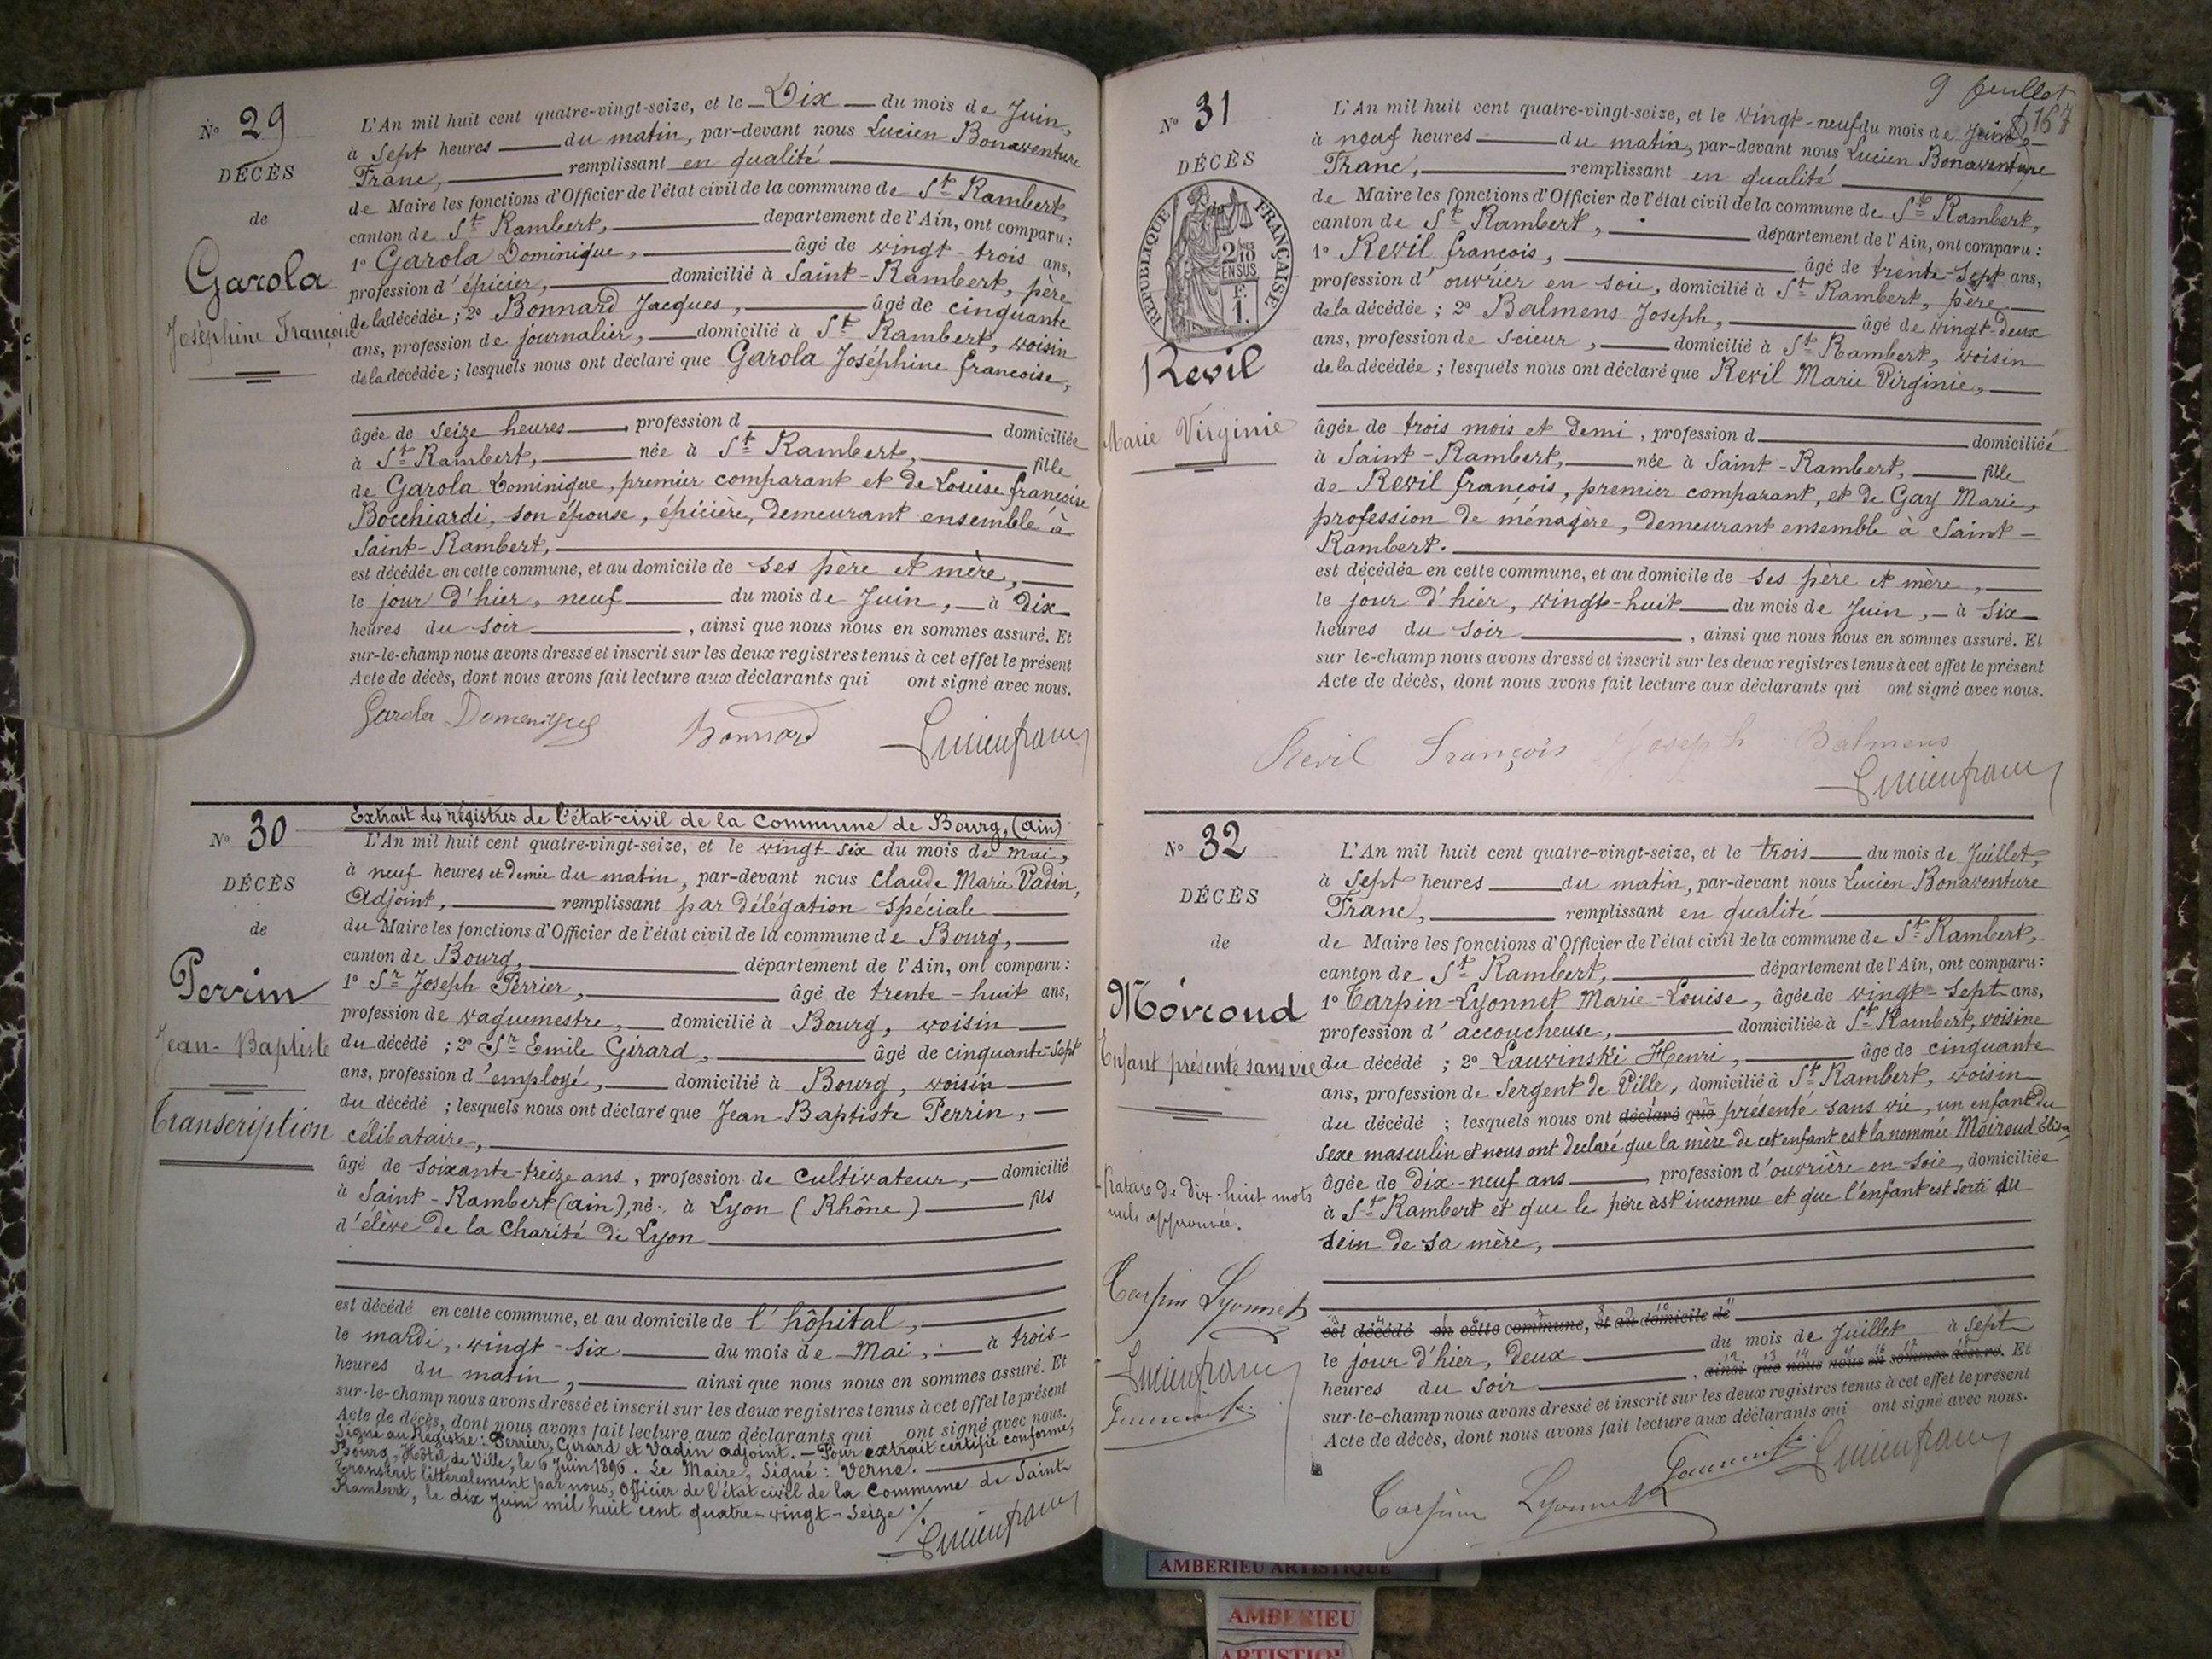 N° 29
DÉCÈS
de
Garola
Joséphine Françoise
L'An mil huit cent quatre-vingt-seize, et le Dix du mois de Juin,
à Sept heures du matin, par-devant nous Lucien Bonaventure
Franc, remplissant en qualité
de Maire les fonctions d'Officier de l'état civil de la commune de St Rambert,
canton de St Rambert, département de l'Ain, ont comparu :
1° Garola Dominique, âgé de vingt-trois ans,
profession d'épicier, domicilié à Saint-Rambert, père
de la décédée ; 2° Bonnard Jacques, âgé de cinquante
ans, profession de journalier, domicilié à St Rambert, voisin
de la décédée ; lesquels nous ont déclaré que Garola Joséphine françoise,
âgée de Seize heures, profession d domiciliée
à St Rambert, née à St Rambert, fille
de Garola Dominique, premier comparant et de Louise françoise
Bocchiardi, son épouse, épicière, demeurant ensemble à
Saint-Rambert,
est décédée en cette commune, et au domicile de ses père et mère,
le jour d'hier, neuf du mois de Juin, à Dix
heures du soir, ainsi que nous nous en sommes assuré. Et
sur-le-champ nous avons dressé et inscrit sur les deux registres tenus à cet effet le présent
Acte de décès, dont nous avons fait lecture aux déclarants qui ont signé avec nous.
Garola Domenique Bonnard Lucien franc
N° 30
DÉCÈS
de
Perrin
Jean-Baptiste
Transcription
Extrait des régistres de l'état-civil de la Commune de Bourg, (ain)
L'An mil huit cent quatre-vingt-seize, et le vingt-six du mois de mai,
à neuf heures et demie du matin, par-devant nous Claude Marie Vadin,
Adjoint, remplissant par délégation spéciale
du Maire les fonctions d'Officier de l'état civil de la commune de Bourg,
canton de Bourg, département de l'Ain, ont comparu :
1° Sr Joseph Perrier, âgé de trente-huit ans,
profession de vaguemestre, domicilié à Bourg, voisin
du décédé ; 2° Sr Emile Girard, âgé de cinquante-sept
ans, profession d'employé, domicilié à Bourg, voisin
du décédé ; lesquels nous ont déclaré que Jean Baptiste Perrin,
célibataire,
âgé de soixante-treize ans, profession de cultivateur, domicilié
à Saint-Rambert (ain), né à Lyon (Rhône) fils
d'élève de la Charité de Lyon
est décédé en cette commune, et au domicile de l'hôpital,
le mardi, vingt-six du mois de Mai, à trois
heures du matin, ainsi que nous nous en sommes assuré. Et
sur-le-champ nous avons dressé et inscrit sur les deux registres tenus à cet effet le présent
Acte de décès, dont nous avons fait lecture aux déclarants qui ont signé avec nous.
Signé au Régistre : Perrier, Girard et Vadin adjoint. — Pour extrait certifié conforme,
Bourg, Hôtel de Ville, le 6 Juin 1896. Le Maire, Signé : Verne.
Transcrit littéralement par nous, Officier de l'état civil de la Commune de Saint-
Rambert, le dix Juin mil huit cent quatre-vingt-Seize ./.
Lucien franc
9 feuillet
167
N° 31
DÉCÈS
RÉPUBLIQUE FRANÇAISE
2/10
EN SUS
Revil
Marie Virginie
L'An mil huit cent quatre-vingt-seize, et le vingt-neuf du mois de Juin,
à neuf heures du matin, par-devant nous Lucien Bonaventure
Franc, remplissant en qualité
de Maire les fonctions d'Officier de l'état civil de la commune de St Rambert,
canton de St Rambert, département de l'Ain, ont comparu :
1° Revil françois, âgé de trente-sept ans,
profession d'ouvrier en soie, domicilié à St Rambert, père
de la décédée ; 2° Balmens Joseph, âgé de vingt-deux
ans, profession de Scieur, domicilié à St Rambert, voisin
de la décédée ; lesquels nous ont déclaré que Revil Marie Virginie,
âgée de trois mois et demi, profession d domiciliée
à Saint-Rambert, née à Saint-Rambert, fille
de Revil françois, premier comparant, et de Gay Marie,
profession de ménagère, demeurant ensemble à Saint-
Rambert.
est décédée en cette commune, et au domicile de ses père et mère,
le jour d'hier, vingt-huit du mois de Juin, à Six
heures du soir, ainsi que nous nous en sommes assuré. Et
sur-le-champ nous avons dressé et inscrit sur les deux registres tenus à cet effet le présent
Acte de décès, dont nous avons fait lecture aux déclarants qui ont signé avec nous.
Revil François Joseph Balmens
Lucien franc
N° 32
DÉCÈS
de
Moiroud
Enfant présenté sans vie
Rature de dix-huit mots
nuls approuvée.
Carpin Lyonnet
Lucien franc
L'An mil huit cent quatre-vingt-seize, et le trois du mois de Juillet,
à Sept heures du matin, par-devant nous Lucien Bonaventure
Franc, remplissant en qualité
de Maire les fonctions d'Officier de l'état civil de la commune de St Rambert,
canton de St Rambert, département de l'Ain, ont comparu :
1° Carpin-Lyonnet Marie-Louise, âgée de vingt-sept ans,
profession d'accoucheuse, domiciliée à St Rambert, voisine
du décédé ; 2° Lauwinski Henri, âgé de cinquante
ans, profession de Sergent de Ville, domicilié à St Rambert, voisin
du décédé ; lesquels nous ont déclaré que présenté sans vie, un enfant du
sexe masculin et nous ont déclaré que la mère de cet enfant est la nommée Moiroud Elisa,
âgée de dix-neuf ans, profession d'ouvrière en soie, domiciliée
à St Rambert et que le père est inconnu et que l'enfant est sorti du
sein de sa mère,
est décédé en cette commune, et au domicile de
le jour d'hier, deux du mois de Juillet à Sept
heures du Soir, ainsi que nous nous en sommes assuré. Et
sur-le-champ nous avons dressé et inscrit sur les deux registres tenus à cet effet le présent
Acte de décès, dont nous avons fait lecture aux déclarants qui ont signé avec nous.
Carpin Lyonnet Lucien franc
AMBERIEU ARTISTIQUE
AMBERIEU
ARTISTIQUE